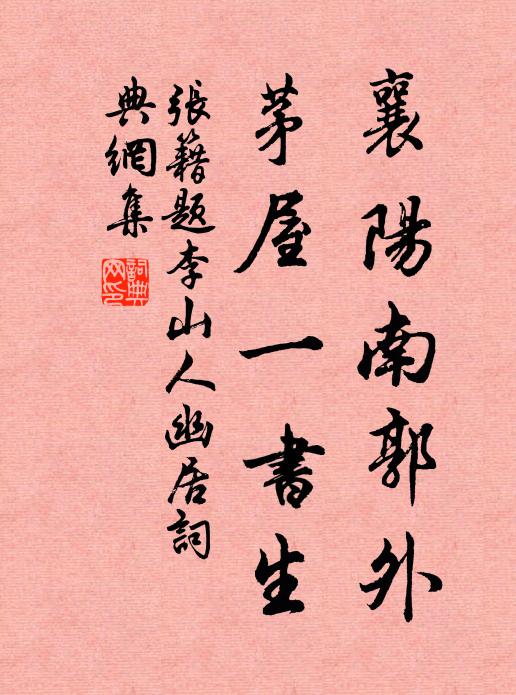 襄陽南郭外
茅屋一書生
張籍題李山人幽居詞
典網集
詞典
网印